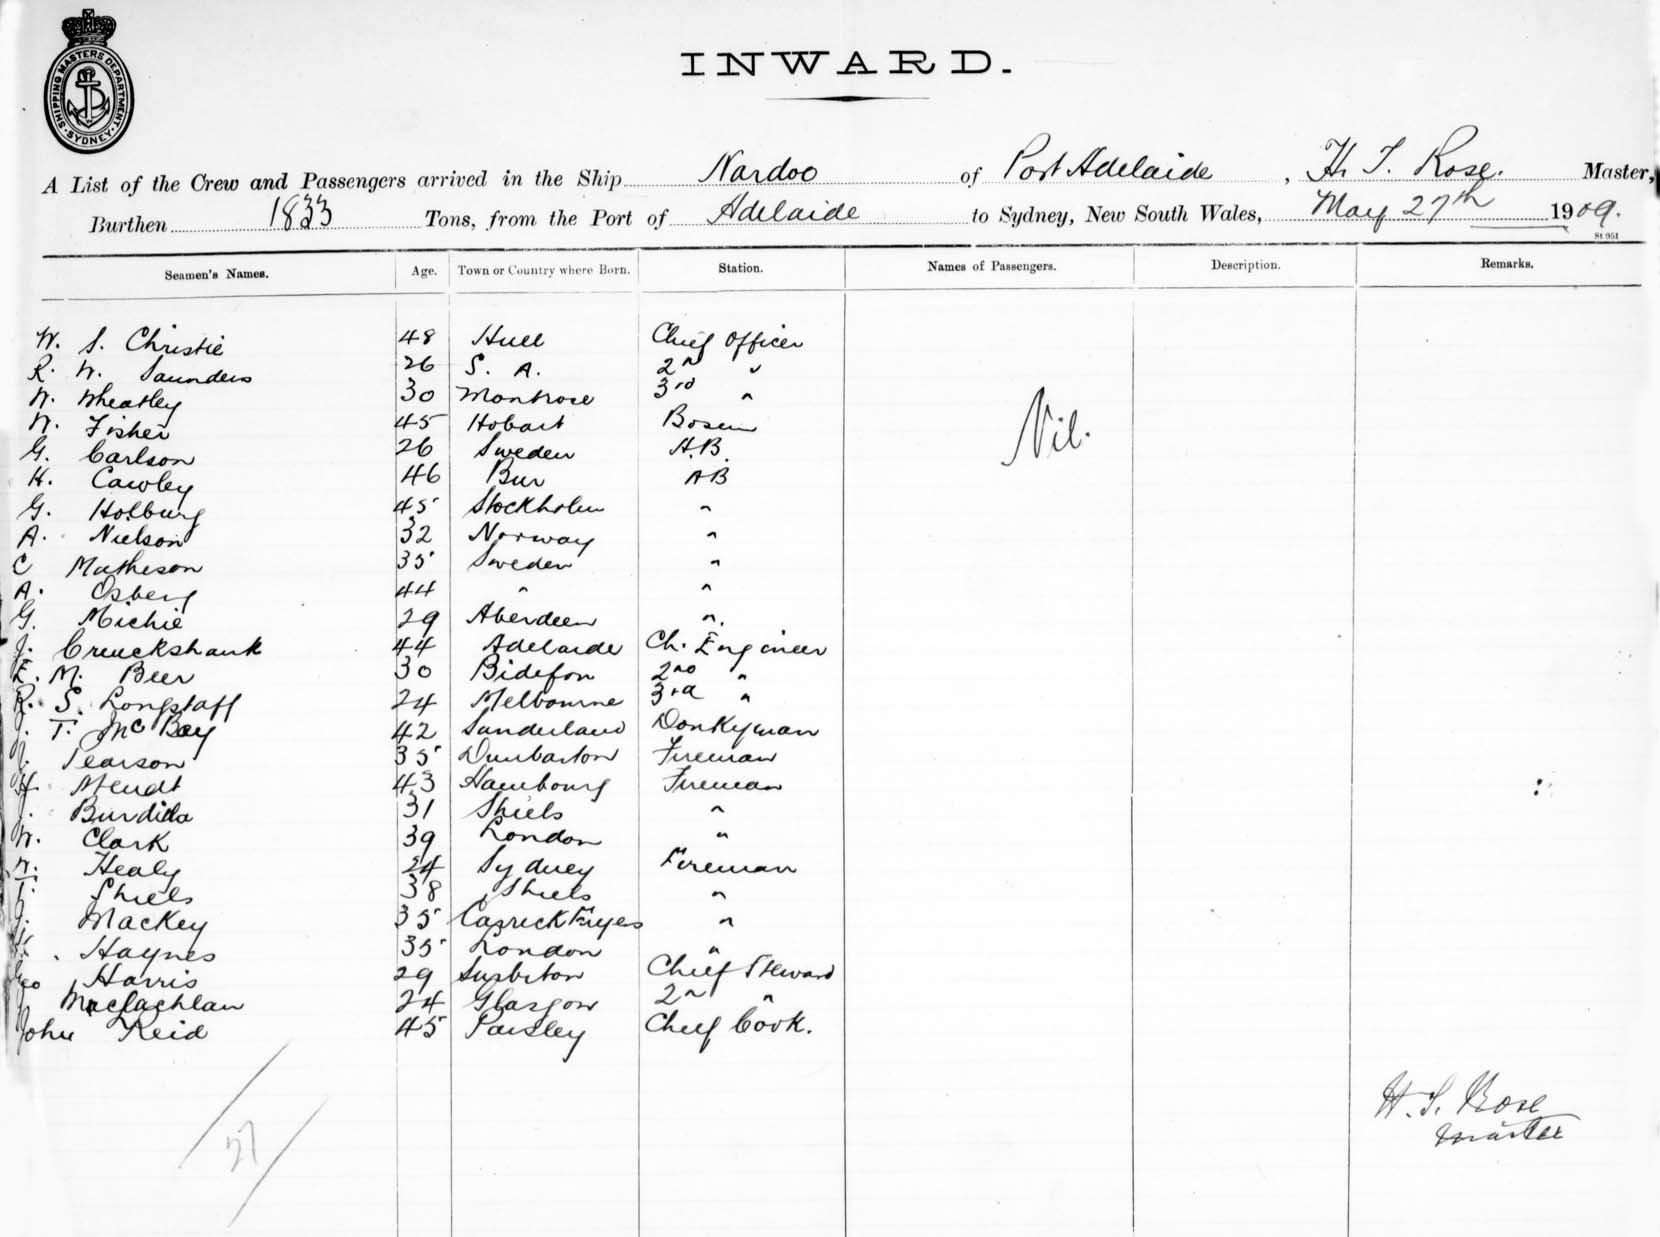 SHIPPING MASTERS DEPARTMENT. SYDNEY.
INWARD.
A List of the Crew and Passengers arrived in the Ship Nardoo of Port Adelaide, H. S. Rose. Master,
Burthen 1833 Tons, from the Port of Adelaide to Sydney, New South Wales, May 27th 1909.
St 951
Seamen's Names. Age. Town or Country where Born. Station. Names of Passengers. Description. Remarks.
W. S. Christie 48 Hull Chief Officer
R. W. Saunders 26 S. A. 2n "
W. Wheatley 30 Montrose 3rd "
W. Fisher 45 Hobart Bosun
Nil.
G. Carlson 26 Sweden A.B.
H. Cawley 46 AB
G. Holburg 45 Stockholm "
A. Nielson 32 Norway "
C Matheson 35 Sweden "
A. Osberg 44 " "
G. Michie 29 Aberdeen "
J. Creuckshank 44 Adelaide Ch. Engineer
E. M. Beer 30 Bidefon 2nd "
R. S. Longstaff 24 Melbourne 3rd "
J. T. McBay 42 Sunderland Donkyman
Pearson 35 Dunbarton Fireman
H. Mendt 43 Hambourg Fireman
J. 31 Shiels "
W. Clark 39 London "
W. Healy 24 Sydney Fireman
T. Shiels 38 Shiels "
J. Mackey 35 Carrickfryes "
H. Haynes 35 London "
Geo Harris 29 Surbiton Chief Steward
J Maclachlan 24 Glasgow 2n "
John Reid 45 Paisley Chief Cook.
27
H. S. Rose
Master